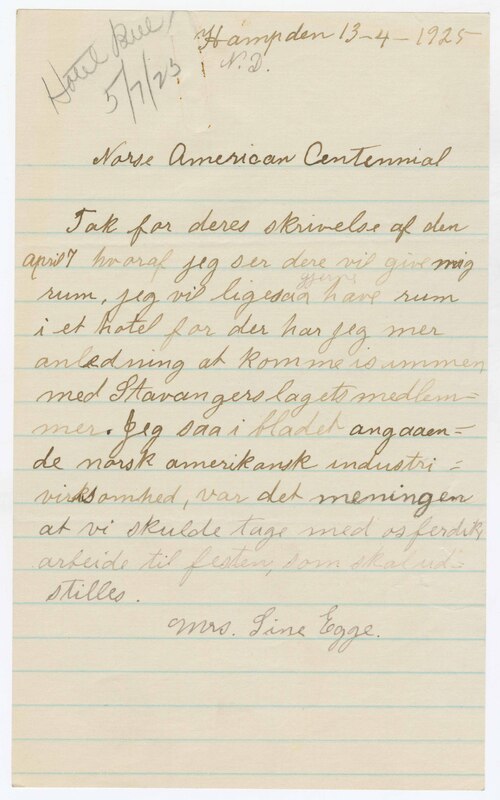 Hotel
5/7/25
Hampden 13-4-1925
N.D.
Norse American Centennial
Tak for deres skrivelse af den
april 7 hvoraf jeg ser dere vil give mig
rum, jeg vil ligesaa gjerne have rum
i et hotel for der har jeg mer
anledning at komme isammen
med Stavangerslagets medlem=
mer. Jeg saa i bladet angaaen=
de norsk amerikansk industri=
virksomhed, var det meningen
at vi skulde tage med os ferdik
arbeide til festen, som skal ud=
stilles.
Mrs. Sine Egge.